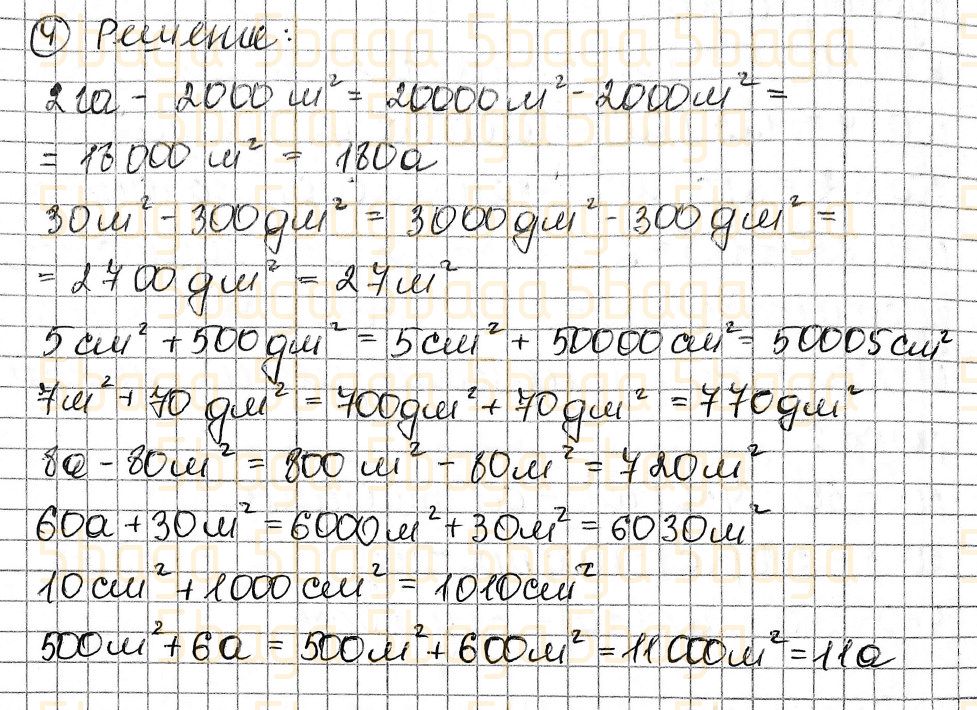 ④ Решение:
2га - 2000 м² = 20000м² - 2000м² =
= 18000 м² = 180а
30м² - 300дм² = 3000дм² - 300дм² =
= 2700 дм² = 27м²
5см² + 500дм² = 5см² + 50000см² = 50005см²
7м² + 70 дм² = 700дм² + 70дм² = 770дм²
8а - 80м² = 800 м² - 80м² = 720м²
60а + 30м² = 6000м² + 30м² = 6030м²
10см² + 1000см² = 1010см²
500м² + 6а = 500м² + 600м² = 11000м² = 11а